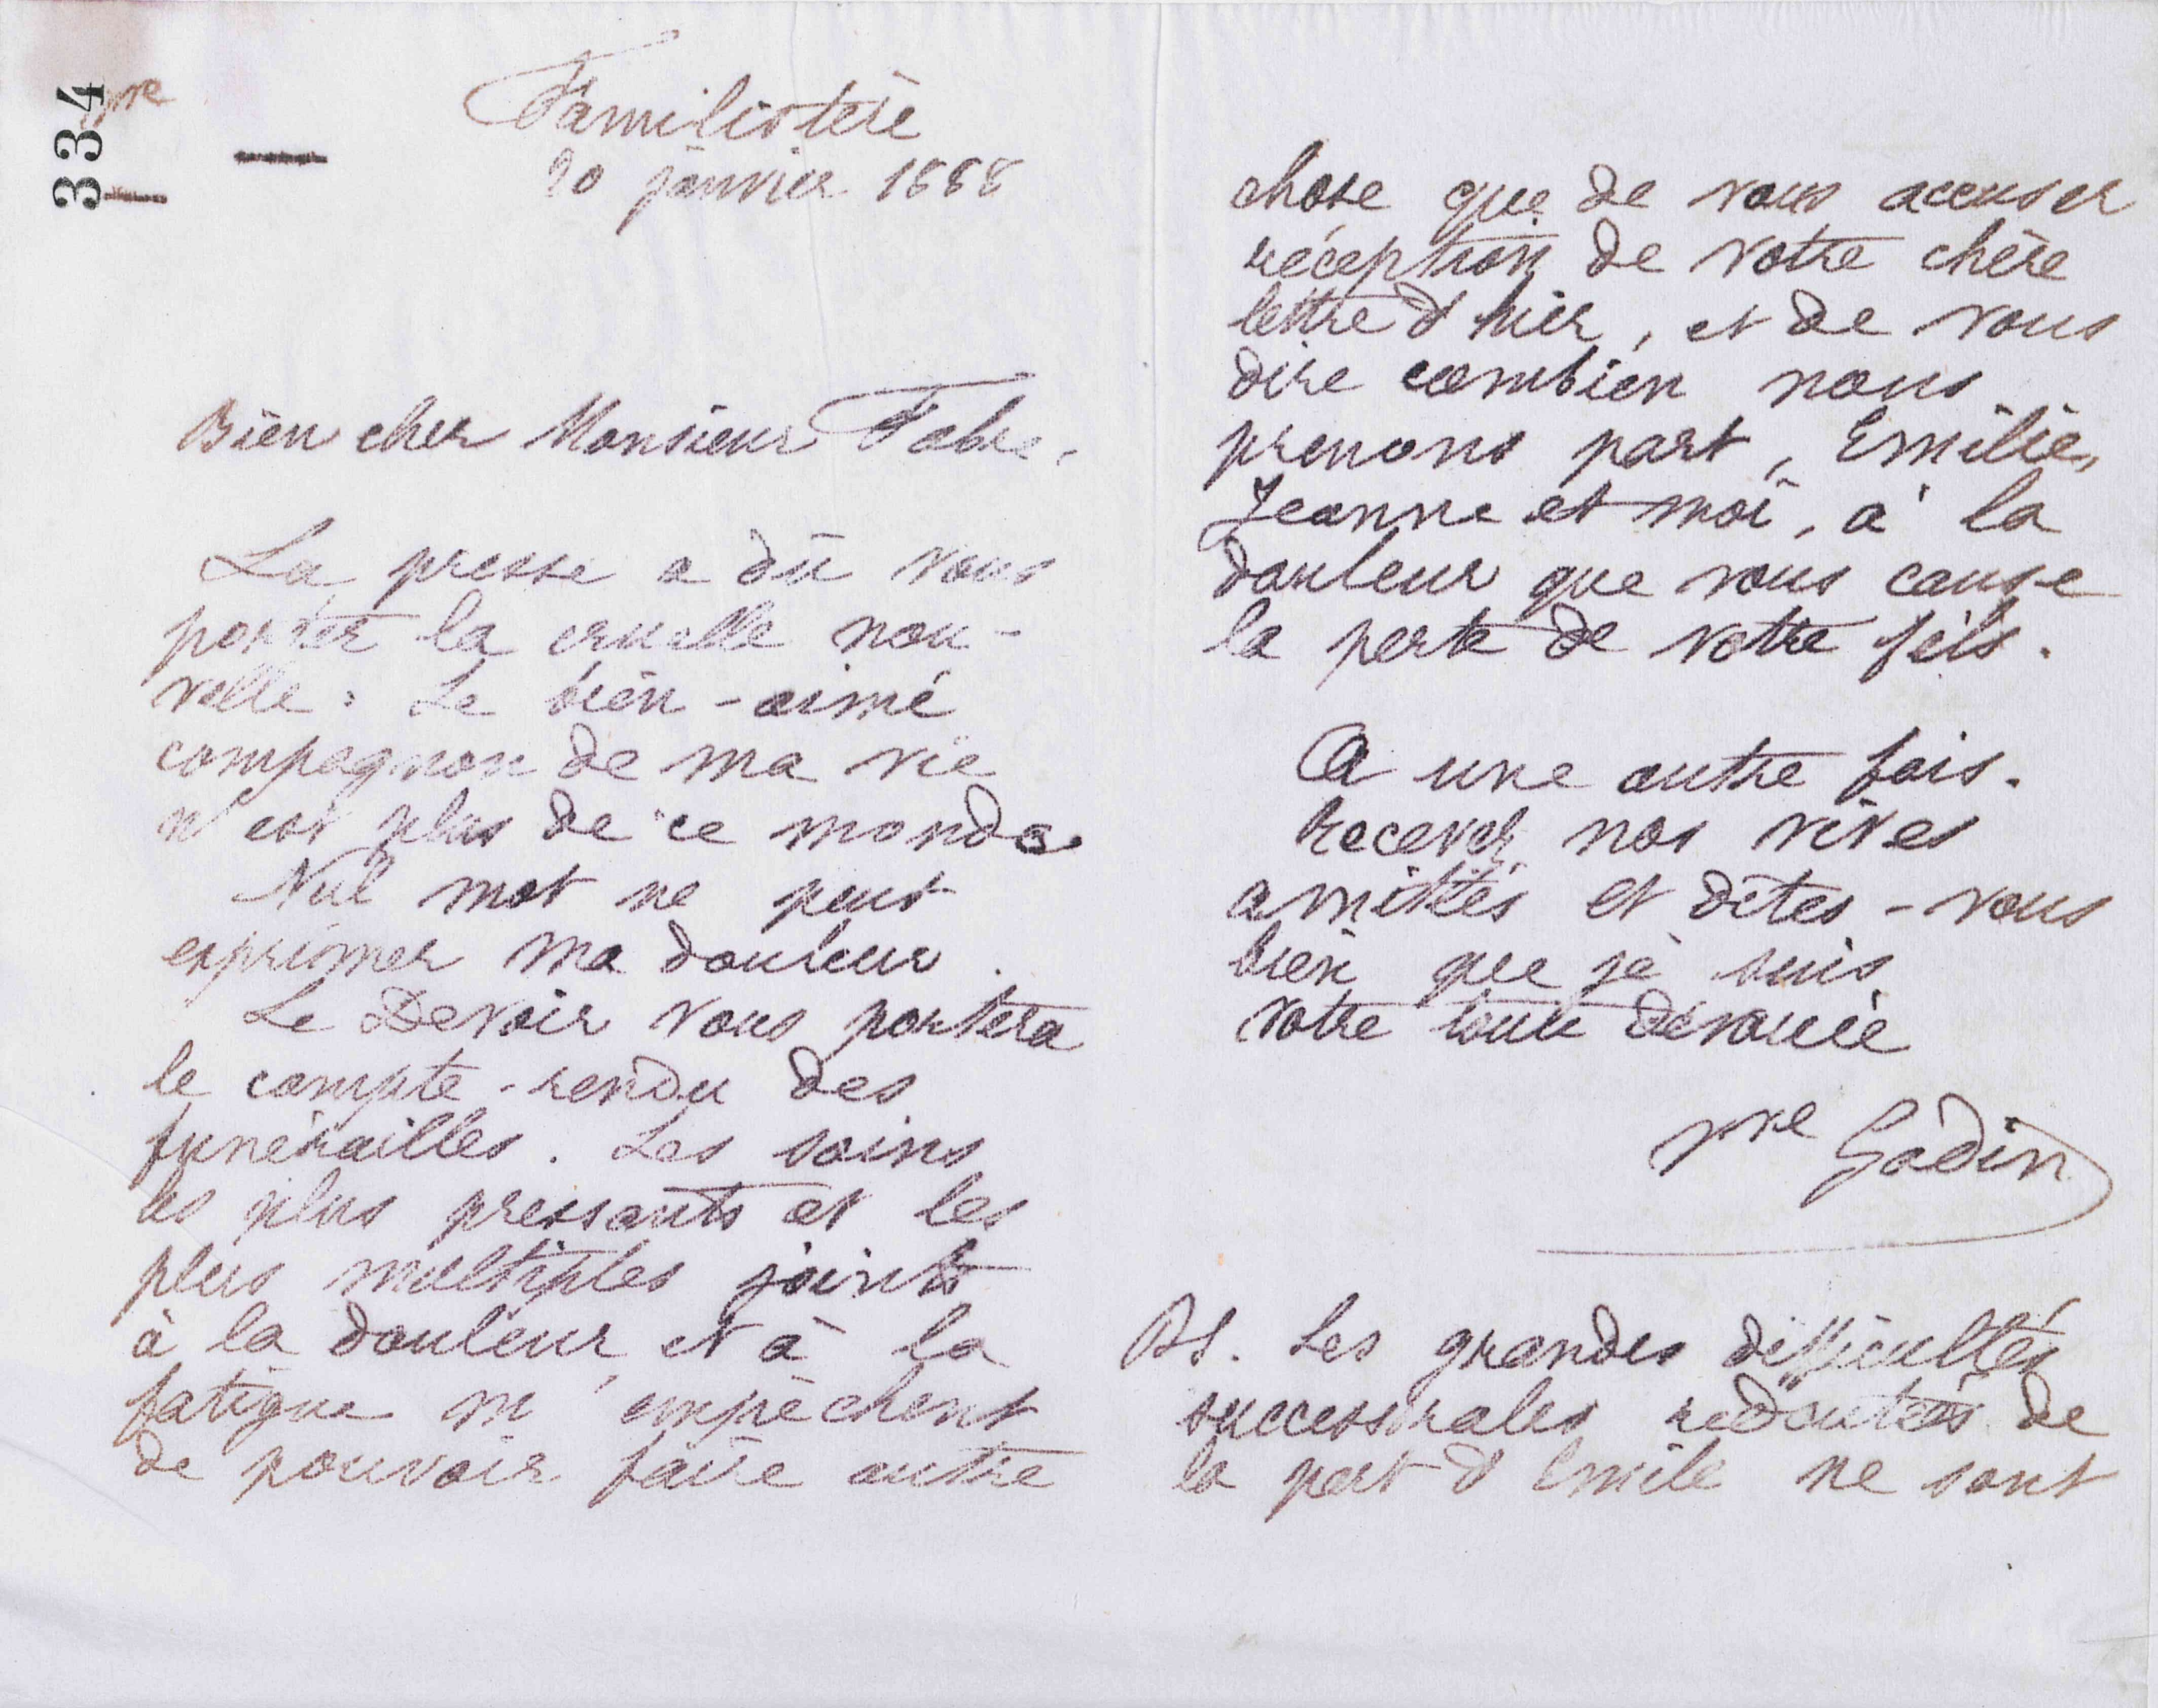 334
Familistère
20 janvier 1888
Bien cher Monsieur Fabre,
La presse a dû vous
porter la cruelle nou-
velle : Le bien-aimé
compagnon de ma vie
n'est plus de ce monde.
Nul mot ne peut
exprimer ma douleur.
Le Devoir vous portera
le compte-rendu des
funérailles. Les soins
les plus pressants et les
plus multiples joints
à la douleur et à la
fatigue m'empêchent
de pouvoir faire autre
chose que de vous accuser
réception de votre chère
lettre d'hier, et de vous
dire combien nous
prenons part, Emilie,
Jeanne et moi, à la
douleur que vous cause
la perte de votre fils.
A une autre fois.
Recevez nos vives
amitiés et dites-vous
bien que je suis
votre toute dévouée
Vve Godin
PS. Les grandes difficultés
successorales redoutées de
la part d'Emile ne sont